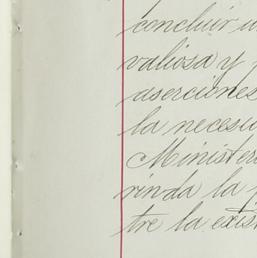 concluir
valiosa y
aserciones
la necesi
Minister
rinda la
tre la exis